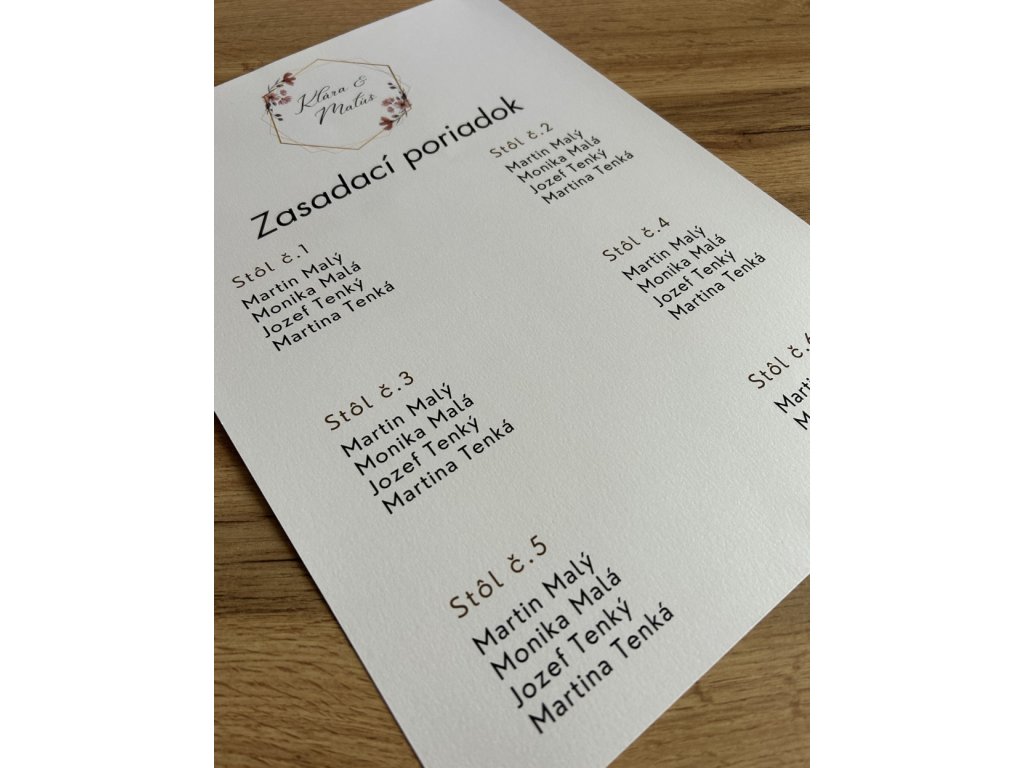 Klára &
Matúš
Zasadací poriadok
Stôl č.1
Martin Malý
Monika Malá
Jozef Tenký
Martina Tenká
Stôl č.2
Martin Malý
Monika Malá
Jozef Tenký
Martina Tenká
Stôl č.3
Martin Malý
Monika Malá
Jozef Tenký
Martina Tenká
Stôl č.4
Martin Malý
Monika Malá
Jozef Tenký
Martina Tenká
Stôl č.5
Martin Malý
Monika Malá
Jozef Tenký
Martina Tenká
Stôl č.6